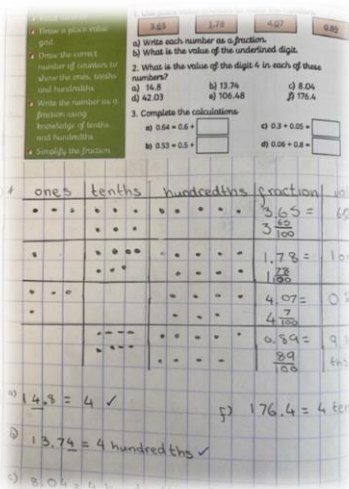 Draw a place value grid
Draw the correct number of counters to show the ones, tenths and hundredths
Write the number as a fraction using knowledge of tenths and hundredths
Simplify the fraction
3.65 1.78 4.07 0.89
a) Write each number as a fraction.
b) What is the value of the underlined digit.
2. What is the value of the digit 4 in each of these numbers?
a) 14.8 b) 13.74 c) 8.04
d) 42.03 e) 106.48 f) 176.4
3. Complete the calculations
a) 0.64 = 0.6 + c) 0.3 + 0.05 =
b) 0.53 = 0.5 + d) 0.06 + 0.8 =
ones tenths hundredths fraction
3.65 =
3 65/100
1.78 =
1 78/100
4.07 =
4 7/100
0.89 =
89/100
a) 14.8 = 4 ✓
f) 176.4 = 4
b) 13.74 = 4 hundredths ✓
c) 8.04 = 4